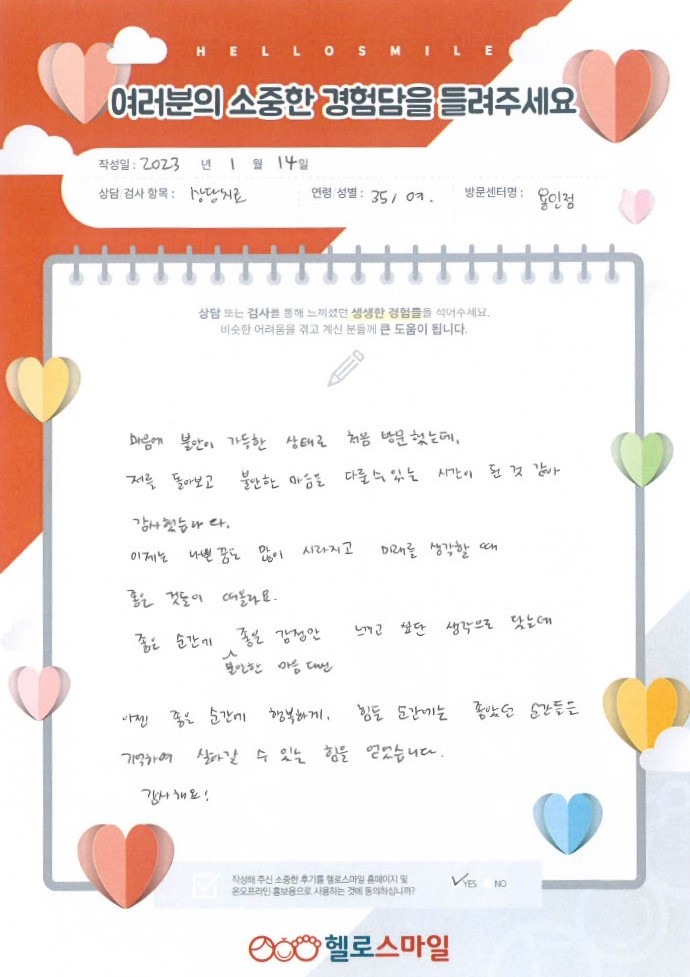 HELLOSMILE
여러분의 소중한 경험담을 들려주세요
작성일 : 2023 년 1 월 14일
상담 검사 항목 : 상담치료 연령 성별 : 35/여. 방문센터명 : 용인점
상담 또는 검사를 통해 느끼셨던 생생한 경험들을 적어주세요.
비슷한 어려움을 겪고 계신 분들께 큰 도움이 됩니다.
마음에 불안이 가득한 상태로 처음 방문했는데,
저를 돌아보고 불안한 마음을 다룰 수 있는 시간이 된 것 같아
감사했습니다.
이제는 나쁜 꿈도 많이 사라지고 미래를 생각할 때
좋은 것들이 떠올라요.
좋은 순간에 좋은 감정만 느끼고 싶단 생각으로 왔는데
불안한 마음 대신
이젠 좋은 순간에 행복하게, 힘든 순간에는 좋았던 순간들을
기억하며 살아갈 수 있는 힘을 얻었습니다.
감사해요!
작성해 주신 소중한 후기를 헬로스마일 홈페이지 및
온오프라인 홍보용으로 사용하는 것에 동의하십니까? YES NO
헬로스마일